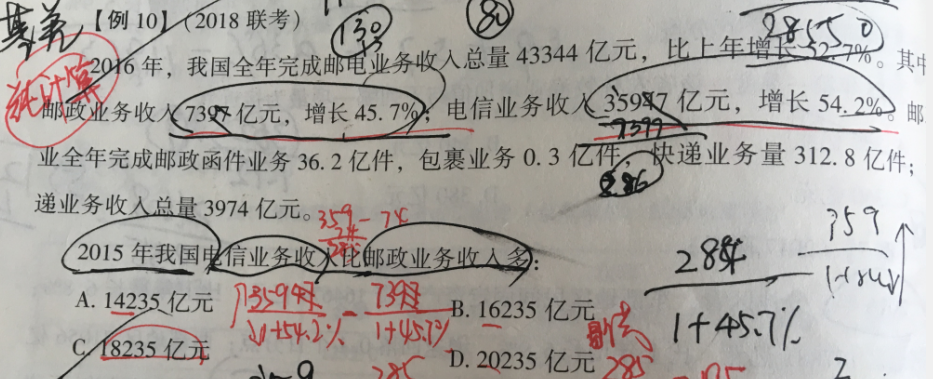 基差
【例 10】(2018 联考)
130
80
28550
2016 年，我国全年完成邮电业务收入总量 43344 亿元，比上年增长 52.7%。其中
纯计算
邮政业务收入 7397 亿元，增长 45.7%；电信业务收入 35947 亿元，增长 54.2%。邮
7397
业全年完成邮政函件业务 36.2 亿件，包裹业务 0.3 亿件，快递业务量 312.8 亿件；
286
递业务收入总量 3974 亿元。
359－74
359
2015 年我国电信业务收入比邮政业务收入多：
A. 14235 亿元
B. 16235 亿元
1+54.2%
1+45.7%
1+45.7%
C. 18235 亿元
D. 20235 亿元
285
285